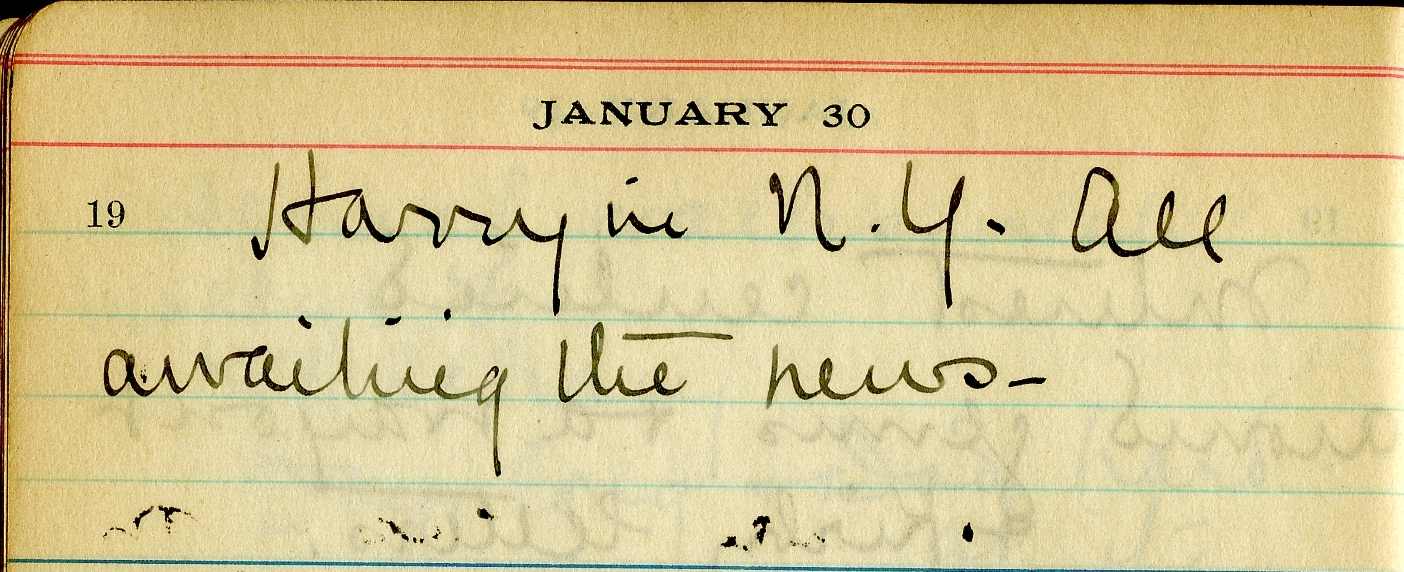 JANUARY 30
19 Harry in N.Y. All
awaiting the news-